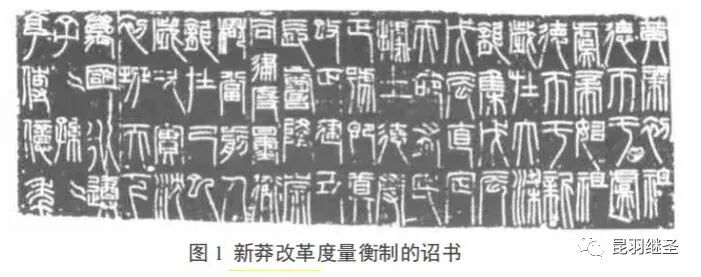 黄帝初祖
德帀于虞
虞帝始祖
德帀于新
歲在大梁
龍集戊辰
戊辰直定
天命有民
據土德受
正號即真
改正建丑
長壽隆崇
同律度量衡
稽當前人
龍在己巳
歲次實沈
初班天下
萬國永遵
子子孫孫
享傳億年
图 1 新莽改革度量衡制的诏书
昆羽继圣